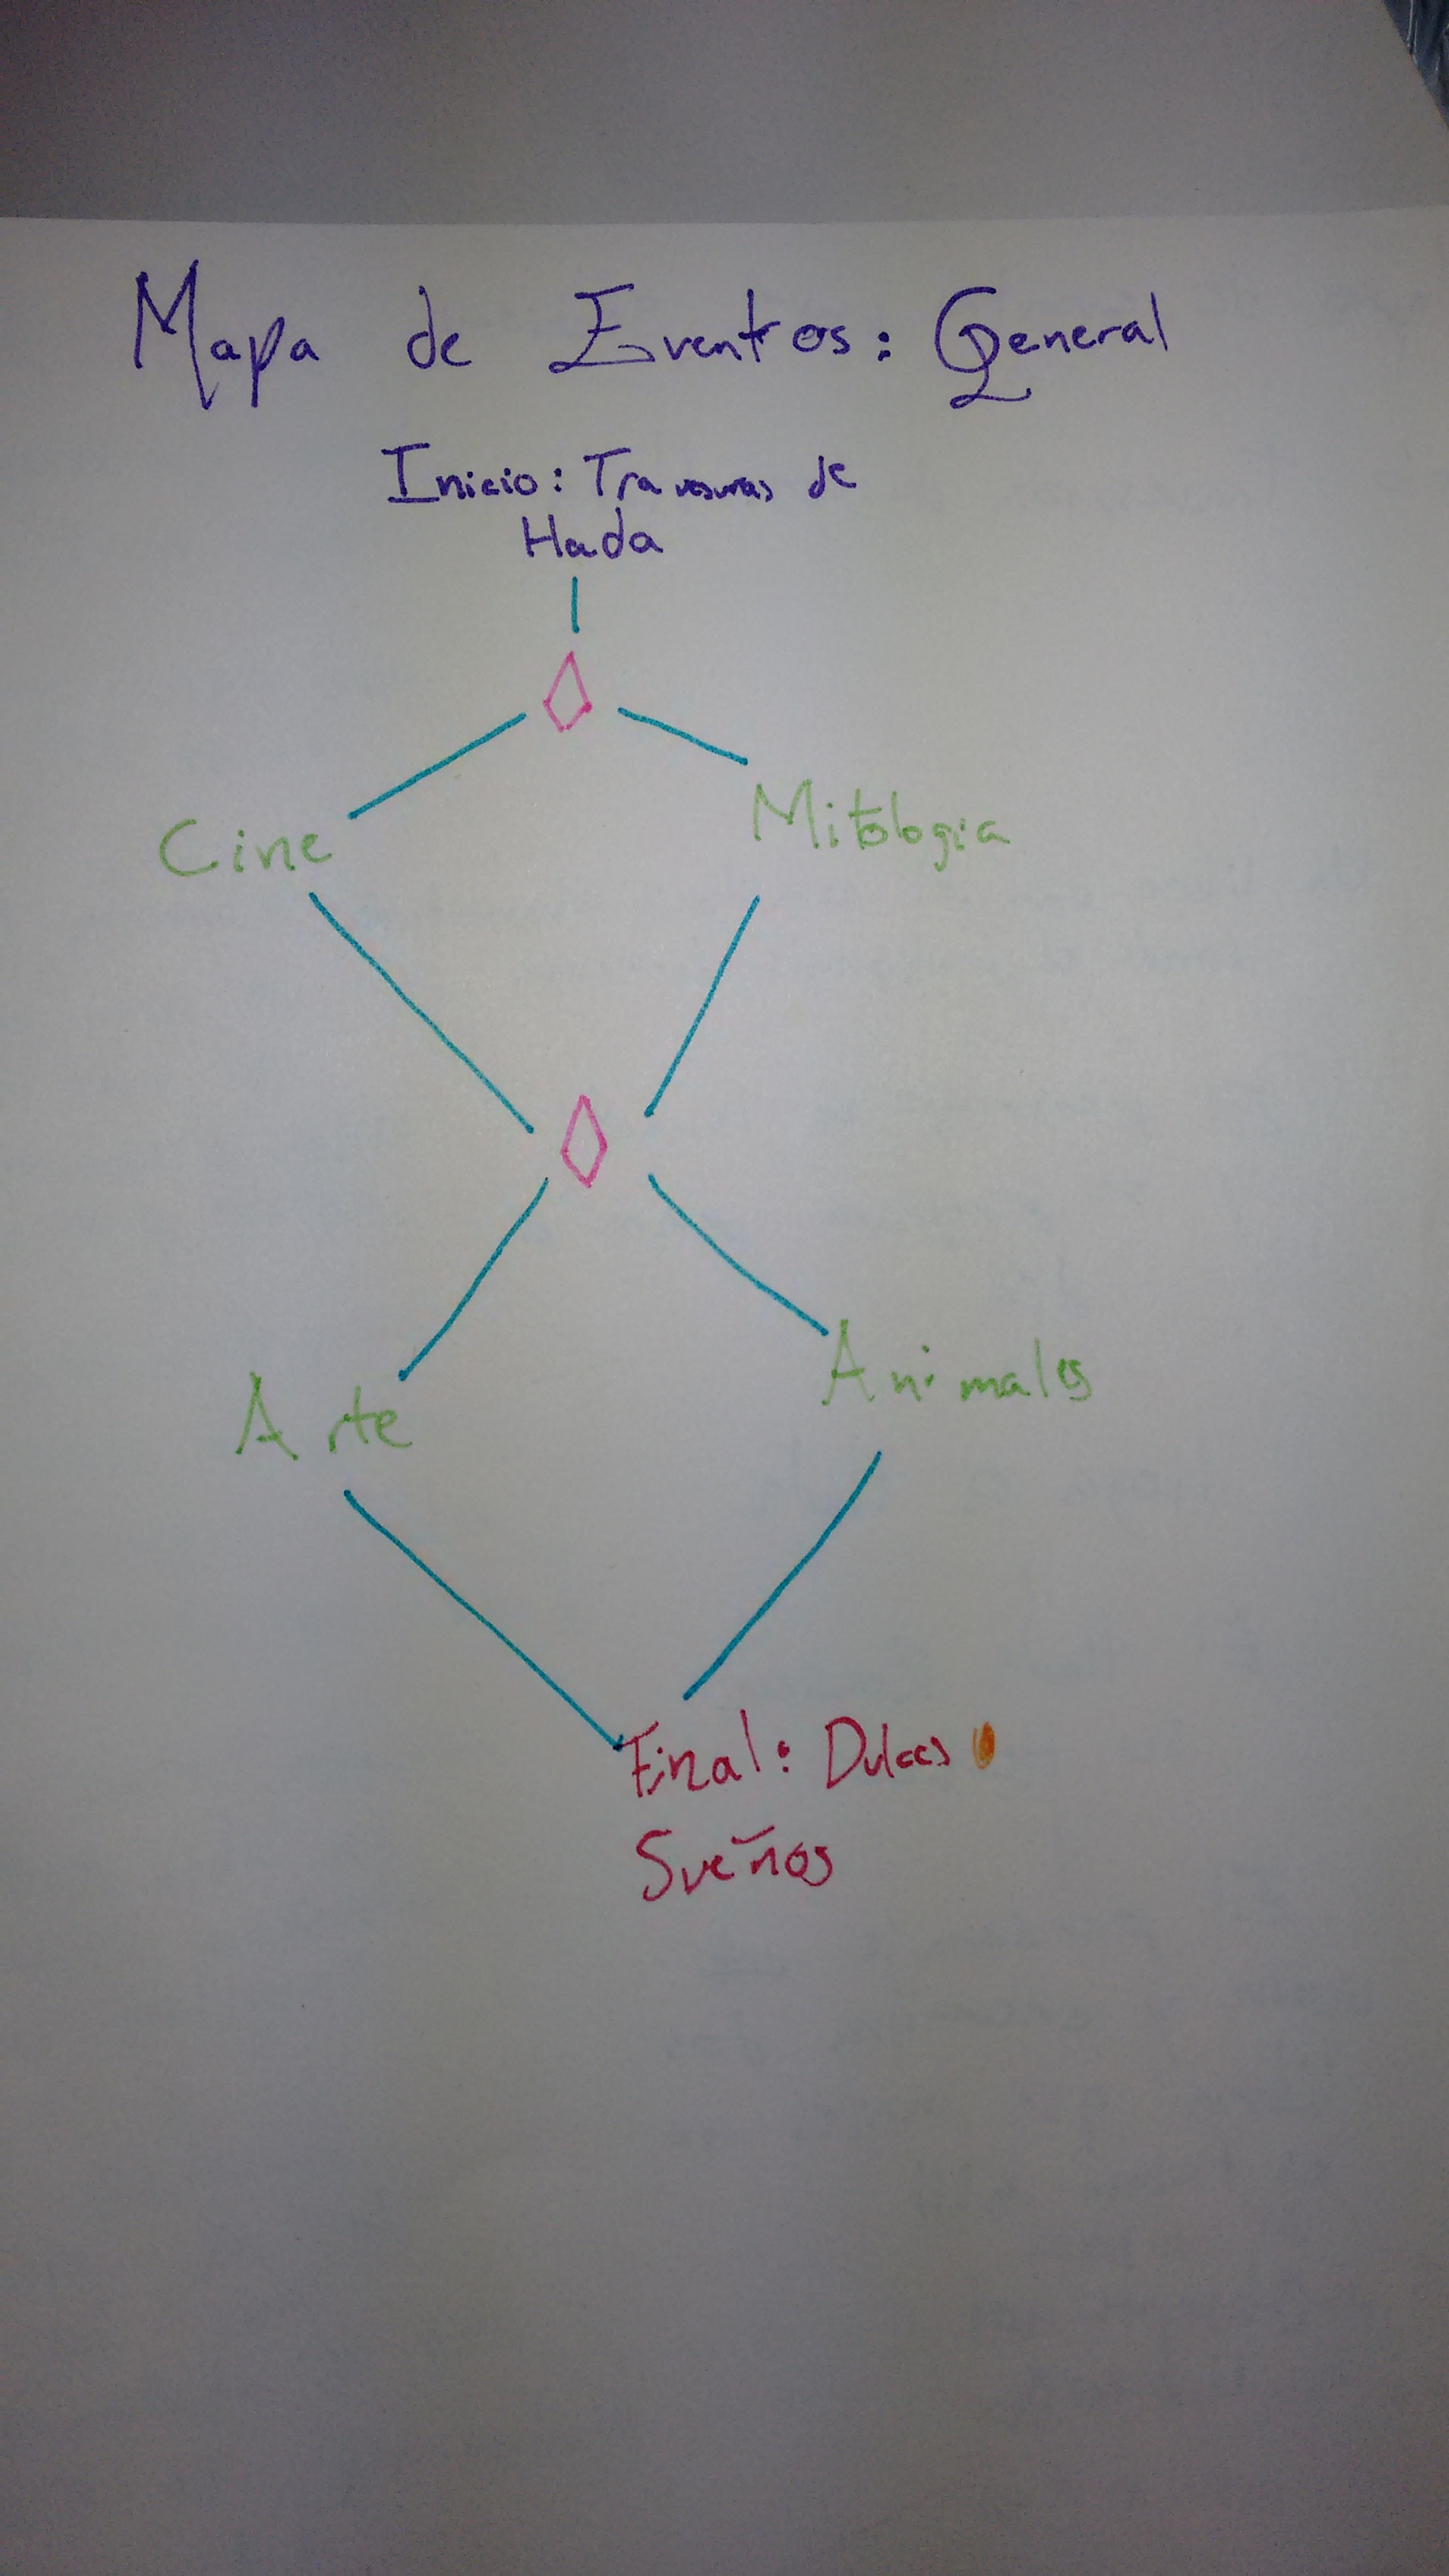 Mapa de Eventos: General
Inicio: Travesuras de
Hada
Cine
Mitologia
Arte
Animales
Final: Dulces
Sueños